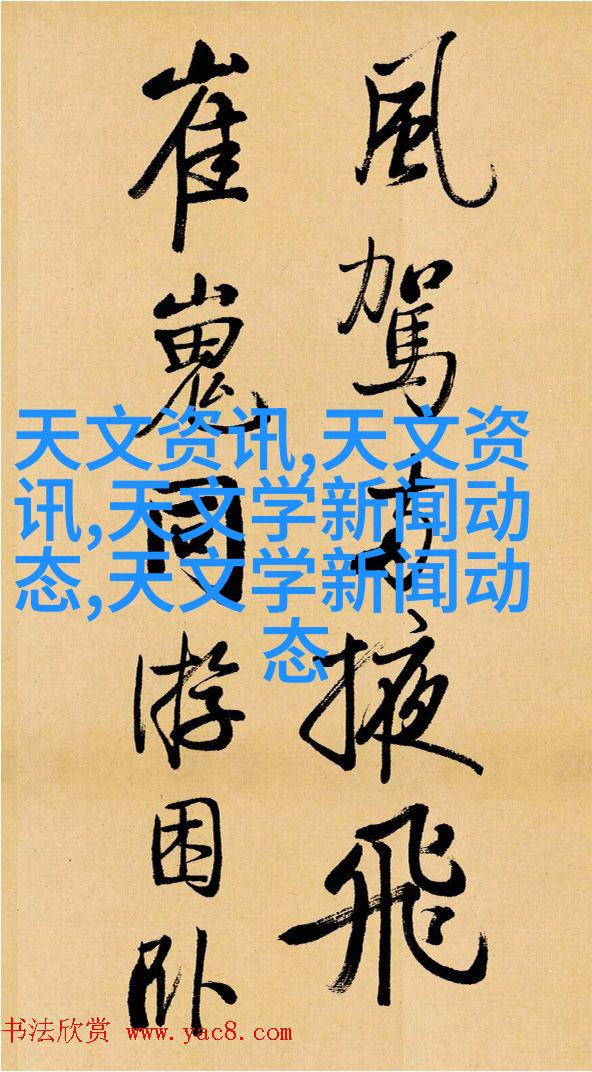 風駕掖飛
崔嵬同游困卧
天文资讯,天文资
讯,天文学新闻动
态,天文学新闻动
态
书法欣赏 www.yac8.com